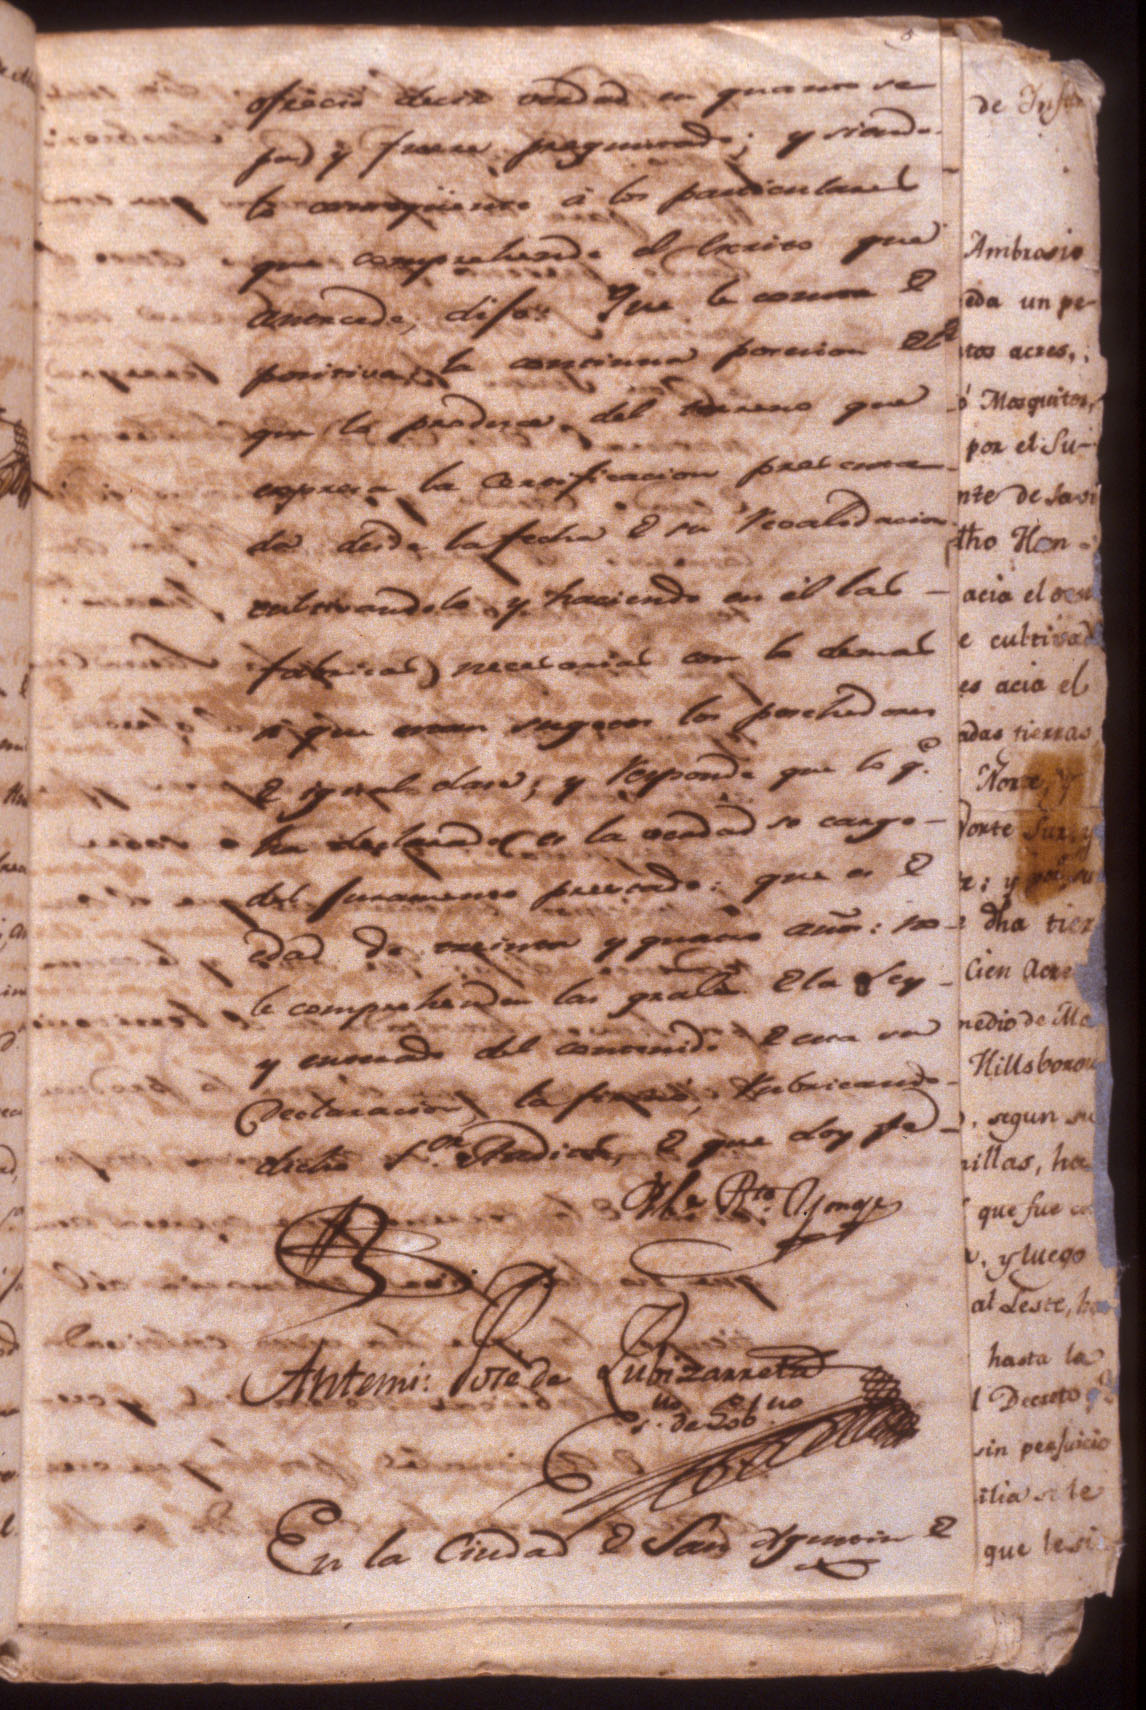 ofrecio decir verdad en quanto se
pa y fuere preguntado; y siendo
lo conseqüente á los particulares
que comprehende el Escrito que
antecede, dijo: Que le consta
positiva, la continua posesion
que la produce del terreno que
expresa la Certificacion presenta
da desde la fecha su
cultivandolo y haciendo en él las
fabricas necesarias con lo demas
á que estan sugetos los poseedores
igual clase; y responde que lo q.e
ha declarado es la verdad so cargo
del Juramento prestado: que es
edad de treinta y quatro años: no
le comprehenden las grales la Ley
y enterado del contenido esta su
Declaracion, la firmó, Rubricando
dicho S.or que doy fe
Yonge
Antemi: Jose de Zubizarreta
Es.no de Gob.no
En la Ciudad San Agustin
de
Ambrosio
eda un pe-
tos acres,
ó Mosquitos,
por el Su-
nte de
dho Hon-
acia el
e cultivad
es acia el
adas tierras
Norte, y
Norte Sur, y
dha tier
Cien Acre
medio de Mo
Hillsborou
segun su
millas, ha
que fue
y luego
al Leste, ha
hasta la
l Decreto
sin perjuicio
ilia se le
que le si